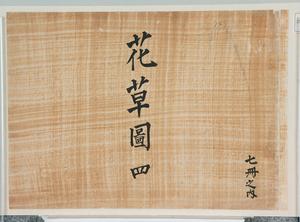 花草圖 四
七冊之内